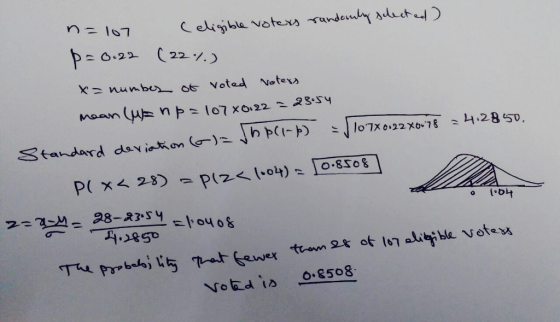 n = 107 (eligible voters randomly selected)
p = 0.22 (22%)
x = number of voted voters
mean (μ)= np = 107 x0.22 = 23.54
Standard deviation (σ)= √np(1-p) = √107x0.22x0.78 = 4.2850.
P(x<28) = P(z<1.04) = 0.8508
0 1.04
z = x-μ/σ = 28-23.54/4.2850 = 1.0408
The probability that fewer than 28 of 107 eligible voters
voted is 0.8508